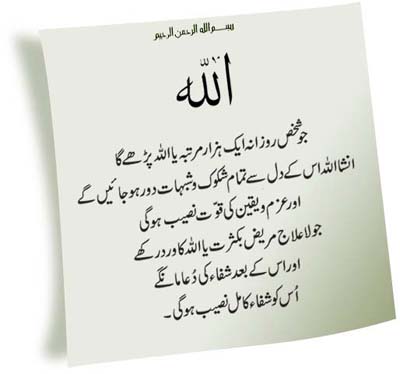 بسم الله الرحمن الرحيم
الله
جو شخص روزانہ ایک ہزار مرتبہ یا اللہ پڑھے گا
انشا اللہ اس کے دل سے تمام شکوک و شبہات دور ہو جائیں گے
اور عزم و یقین کی قوّت نصیب ہوگی
جو لا علاج مریض بکثرت یا اللہ کا ورد رکھے
اور اس کے بعد شفاء کی دُعا مانگے
اُس کو شفاء کامل نصیب ہوگی۔